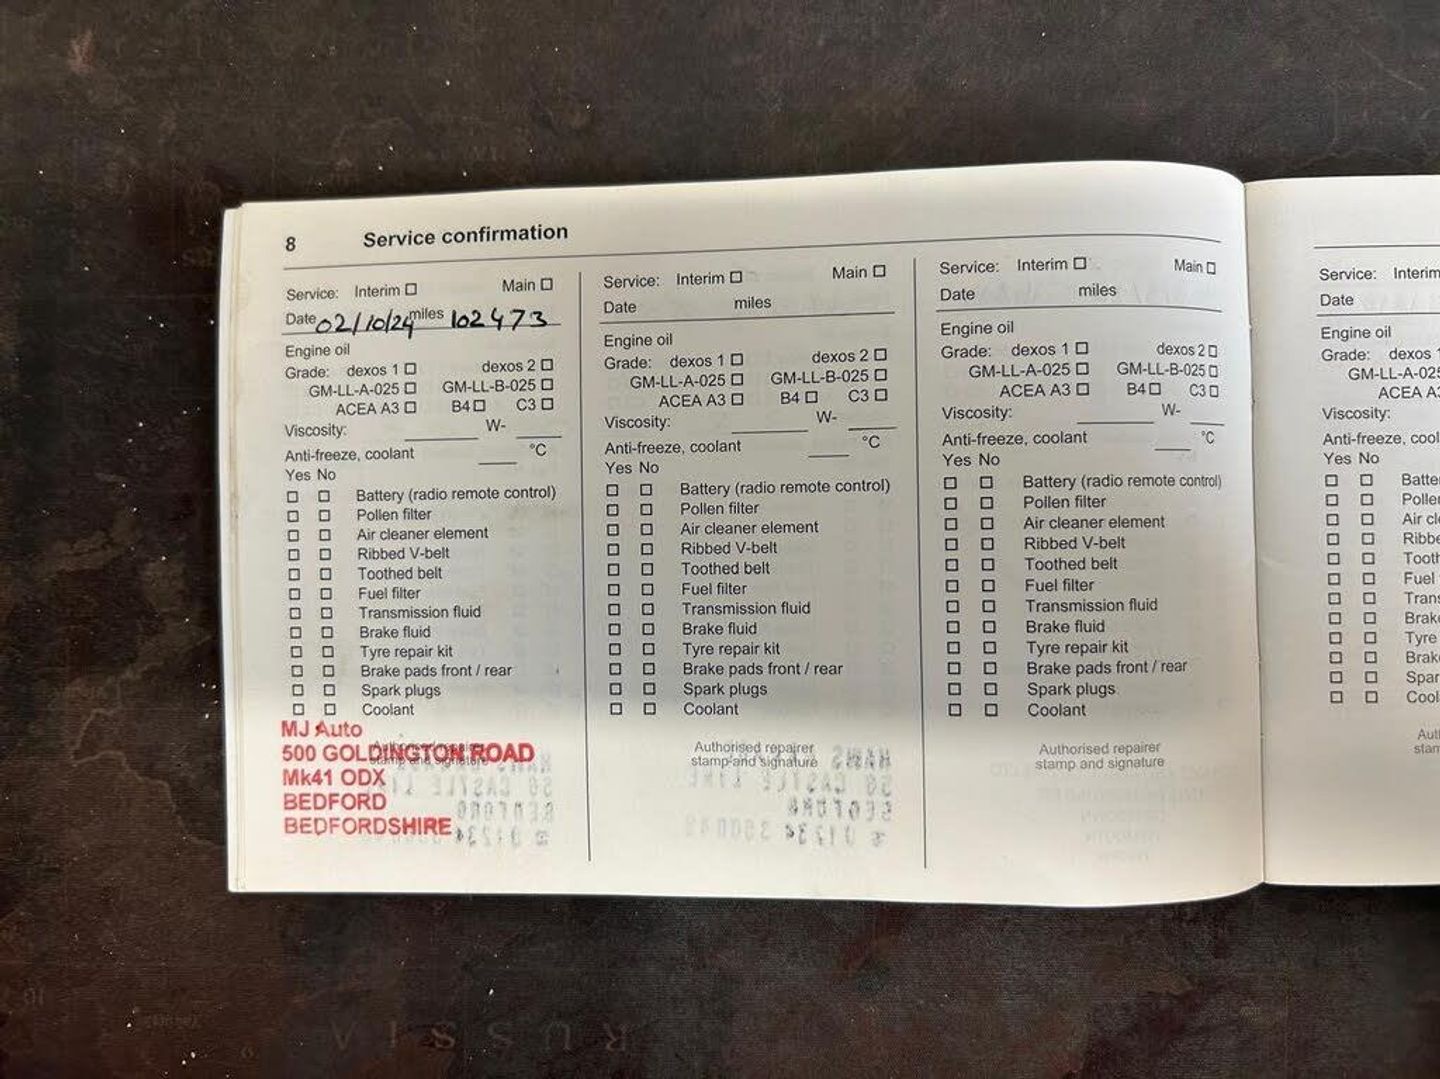 8 Service confirmation
Service: Interim ☐ Main ☐
Date 02/10/24 miles 102473
Engine oil
Grade: dexos 1 ☐ dexos 2 ☐
GM-LL-A-025 ☐ GM-LL-B-025 ☐
ACEA A3 ☐ B4 ☐ C3 ☐
Viscosity: ____ W- ____
Anti-freeze, coolant ____ °C
Yes No
☐ ☐ Battery (radio remote control)
☐ ☐ Pollen filter
☐ ☐ Air cleaner element
☐ ☐ Ribbed V-belt
☐ ☐ Toothed belt
☐ ☐ Fuel filter
☐ ☐ Transmission fluid
☐ ☐ Brake fluid
☐ ☐ Tyre repair kit
☐ ☐ Brake pads front / rear
☐ ☐ Spark plugs
☐ ☐ Coolant
Authorised repairer
stamp and signature
MJ Auto
500 GOLDINGTON ROAD
Mk41 ODX
BEDFORD
BEDFORDSHIRE
Service: Interim ☐ Main ☐
Date miles
Engine oil
Grade: dexos 1 ☐ dexos 2 ☐
GM-LL-A-025 ☐ GM-LL-B-025 ☐
ACEA A3 ☐ B4 ☐ C3 ☐
Viscosity: ____ W- ____
Anti-freeze, coolant ____ °C
Yes No
☐ ☐ Battery (radio remote control)
☐ ☐ Pollen filter
☐ ☐ Air cleaner element
☐ ☐ Ribbed V-belt
☐ ☐ Toothed belt
☐ ☐ Fuel filter
☐ ☐ Transmission fluid
☐ ☐ Brake fluid
☐ ☐ Tyre repair kit
☐ ☐ Brake pads front / rear
☐ ☐ Spark plugs
☐ ☐ Coolant
Authorised repairer
stamp and signature
Service: Interim ☐ Main ☐
Date miles
Engine oil
Grade: dexos 1 ☐ dexos 2 ☐
GM-LL-A-025 ☐ GM-LL-B-025 ☐
ACEA A3 ☐ B4 ☐ C3 ☐
Viscosity: ____ W- ____
Anti-freeze, coolant ____ °C
Yes No
☐ ☐ Battery (radio remote control)
☐ ☐ Pollen filter
☐ ☐ Air cleaner element
☐ ☐ Ribbed V-belt
☐ ☐ Toothed belt
☐ ☐ Fuel filter
☐ ☐ Transmission fluid
☐ ☐ Brake fluid
☐ ☐ Tyre repair kit
☐ ☐ Brake pads front / rear
☐ ☐ Spark plugs
☐ ☐ Coolant
Authorised repairer
stamp and signature
Service: Interim
Date
Engine oil
Grade: dexos 1
GM-LL-A-025
ACEA A3
Viscosity:
Anti-freeze,
Yes No
☐ ☐
☐ ☐
☐ ☐ Air
☐ ☐
☐ ☐
☐ ☐ Fuel
☐ ☐
☐ ☐
☐ ☐ Tyre
☐ ☐
☐ ☐
☐ ☐
RUSSIA